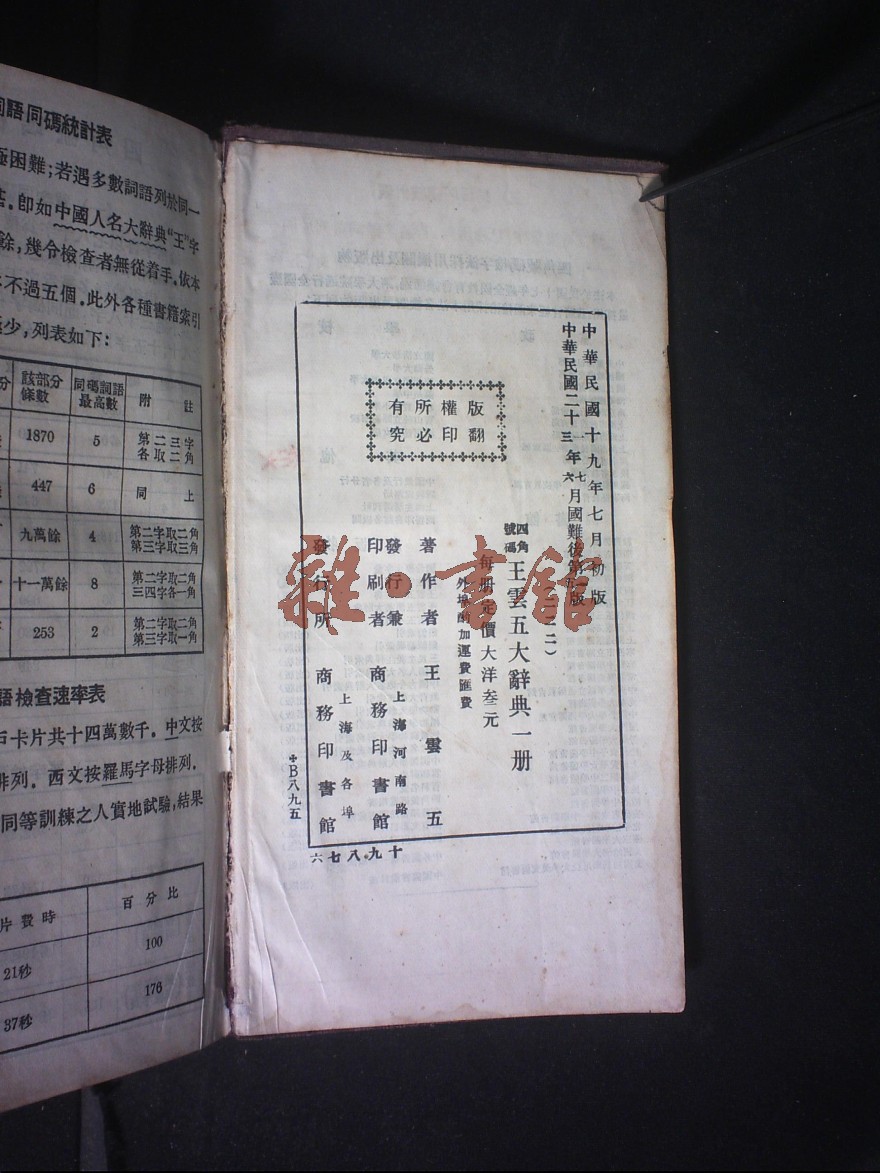 詞語同碼統計表
困難;若遇多數詞語列於同一
卽如中國人名大辭典"王"字
餘,幾令檢查者無從着手.依本
不過五個.此外各種書籍索引
少,列表如下:
該部分條數 同碼詞語最高數 附註
1870 5 第二三字各取二角
447 6 同上
九萬餘 4 第二字取二角第三字取三角
十一萬餘 8 第二字取二角三四字各一角
253 2 第二字取二角第三字取一角
語檢查速率表
卡片共十四萬數千.中文按
排列.西文按羅馬字母排列.
同等訓練之人實地試驗,結果
片費時 百分比
21秒 100
37秒 176
中華民國十九年七月初版
中華民國二十三年六七月國難後第一版
(一二二)
四角號碼王雲五大辭典一册
每册定價大洋叁元
外埠酌加運費匯費
著作者 王雲五
發行兼印刷者 上海河南路 商務印書館
發行所 上海及各埠 商務印書館
版權所有
翻印必究
✣B八九五
六七八九十
雜·書館